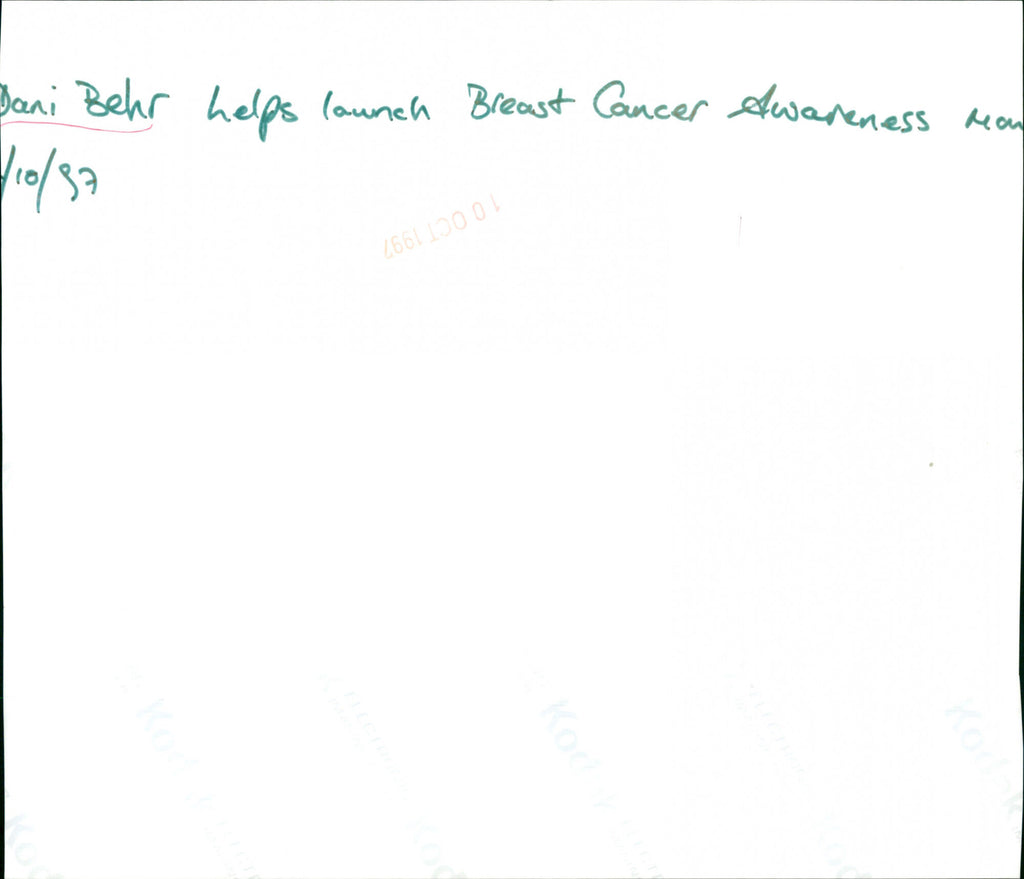 Dani Behr helps launch Breast Cancer Awareness Mon
/10/97
10 OCT 1997
Kod
Kod